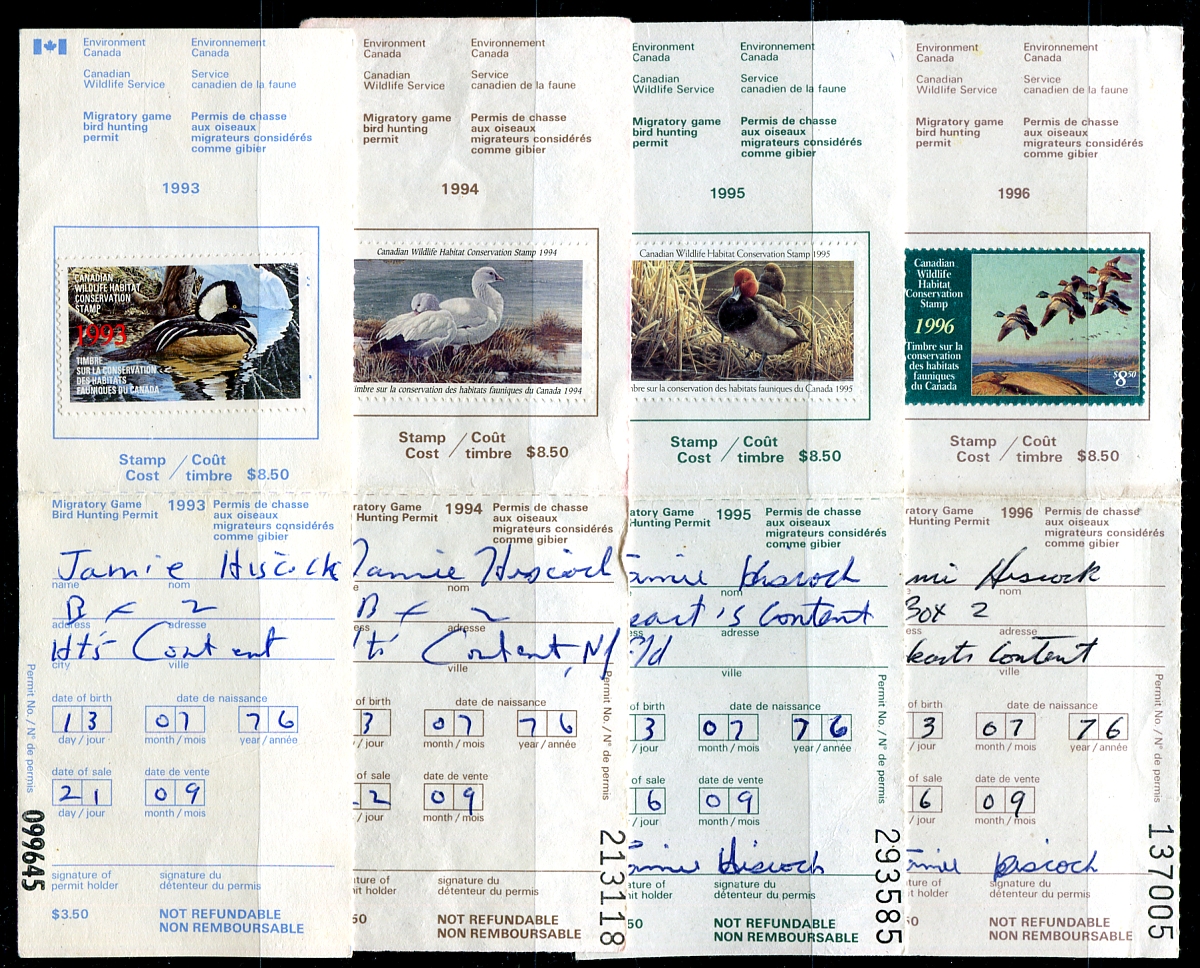 Environment Canada
Environnement Canada
Canadian Wildlife Service
Service canadien de la faune
Migratory game bird hunting permit
Permis de chasse aux oiseaux migrateurs considérés comme gibier
1993
CANADIAN
WILDLIFE HABITAT
CONSERVATION
STAMP
1993
TIMBRE
SUR LA CONSERVATION
DES HABITATS
FAUNIQUES DU CANADA
Stamp Cost / Coût timbre $8.50
Migratory Game Bird Hunting Permit
1993
Permis de chasse aux oiseaux migrateurs considérés comme gibier
Jamie Hiscock
name nom
Bx 2
address adresse
Hts Content
city ville
date of birth date de naissance
13 07 76
day / jour month / mois year / année
date of sale date de vente
21 09
day / jour month / mois
Permit No. / N° de permis
099645
signature of permit holder
signature du détenteur du permis
$3.50
NOT REFUNDABLE
NON REMBOURSABLE
Environment Canada
Environnement Canada
Canadian Wildlife Service
Service canadien de la faune
Migratory game bird hunting permit
Permis de chasse aux oiseaux migrateurs considérés comme gibier
1994
Canadian Wildlife Habitat Conservation Stamp 1994
imbre sur la conservation des habitats fauniques du Canada 1994
Stamp Cost / Coût timbre $8.50
ratory Game Hunting Permit
1994
Permis de chasse aux oiseaux migrateurs considérés comme gibier
Jamie Hiscock
nom
Bx 2
ess adresse
ts Content, Nf
ville
of birth date de naissance
3 07 76
/ jour month / mois year / année
of sale date de vente
2 09
/ jour month / mois
Permit No. / N° de permis
213118
ture of it holder
signature du détenteur du permis
50
NOT REFUNDABLE
NON REMBOURSABLE
Environment Canada
Environnement Canada
Canadian Wildlife Service
Service canadien de la faune
Migratory game bird hunting permit
Permis de chasse aux oiseaux migrateurs considérés comme gibier
1995
Canadian Wildlife Habitat Conservation Stamp 1995
bre sur la conservation des habitats fauniques du Canada 1995
Stamp Cost / Coût timbre $8.50
ratory Game Hunting Permit
1995
Permis de chasse aux oiseaux migrateurs considérés comme gibier
amie Hiscock
nom
eart's Content
ess adresse
fld
ville
of birth date de naissance
3 07 76
/ jour month / mois year / année
of sale date de vente
6 09
/ jour month / mois
Permit No. / N° de permis
293585
amie Hiscock
ture of it holder
signature du détenteur du permis
50
NOT REFUNDABLE
NON REMBOURSABLE
Environment Canada
Environnement Canada
Canadian Wildlife Service
Service canadien de la faune
Migratory game bird hunting permit
Permis de chasse aux oiseaux migrateurs considérés comme gibier
1996
Canadian
Wildlife
Habitat
Conservation
Stamp
1996
Timbre sur la
conservation
des habitats
fauniques
du Canada
$8.50
Stamp Cost / Coût timbre $8.50
ratory Game Hunting Permit
1996
Permis de chasse aux oiseaux migrateurs considérés comme gibier
mi Hiscock
nom
Box 2
ess adresse
hearts Content
ville
of birth date de naissance
3 07 76
/ jour month / mois year / année
of sale date de vente
6 09
/ jour month / mois
Permit No. / N° de permis
137005
amie Hiscock
ture of it holder
signature du détenteur du permis
50
NOT REFUNDABLE
NON REMBOURSABLE